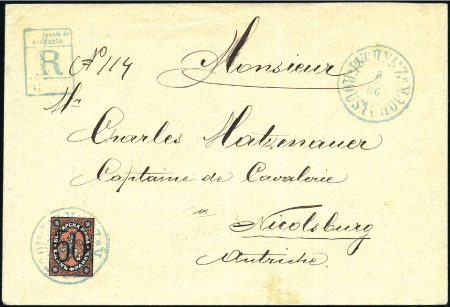 Bulgarie
R
№ 114
Monsieur
Mr
Charles Matzenauer
Captaine de Cavalerie
Nicolsburg
Autriche
50